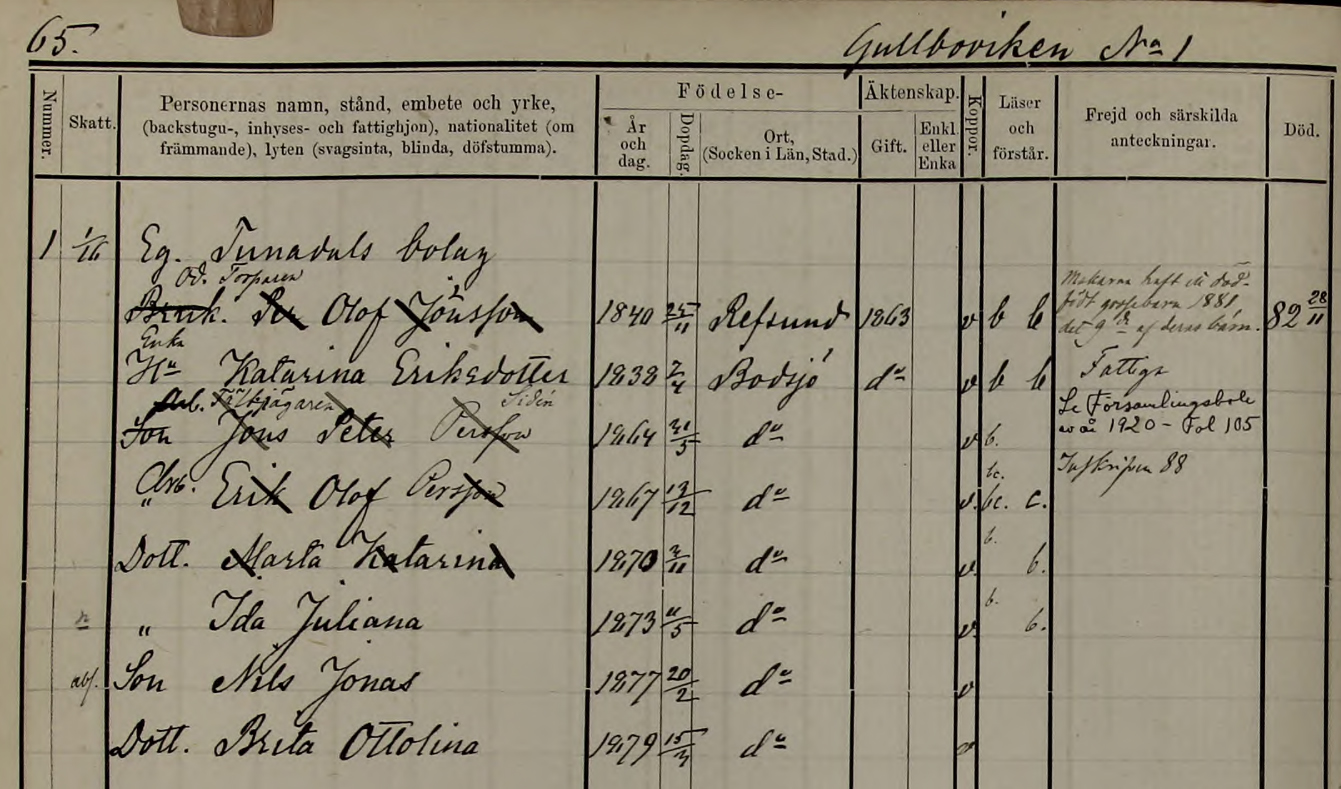 65.
Gullboviken No 1
Nummer.
Skatt.
Personernas namn, stånd, embete och yrke,
(backstugu-, inhyses- och fattighjon), nationalitet (om
främmande), lyten (svagsinta, blinda, döfstumma).
Födelse-
År
och
dag.
Dopdag.
Ort,
(Socken i Län, Stad.)
Äktenskap.
Gift.
Enkl.
eller
Enka
Koppor.
Läser
och
förstår.
Frejd och särskilda
anteckningar.
Död.
1 1/16 Eg. Tunadals bolag
Od. Torparen
Bruk. Per Olof Jönsson 1840 25/11 Refsund 1863 v b b 82 28/11
Makarne haft ett död-
födt gossebarn 1881
det 9de af deras barn.
Enka
Hu Katarina Eriksdotter 1838 2/4 Bodsjö do v b b Fattiga
Arb. Fältjägaren Sidén
Son Jöns Peter Persson 1864 31/5 do v b.
Se Församlingsbok
av år 1920 - Fol 105
Arb.
" Erik Olof Persson 1867 12/12 do v. bc. c.
bc.
Inskrifven 88
Dott. Märta Katarina 1870 3/11 do v. b.
b.
" Ida Juliana 1873 11/5 do v. b.
b.
Son Nils Jonas 1877 20/2 do v
Dott. Brita Ottolina 1879 15/3 do v